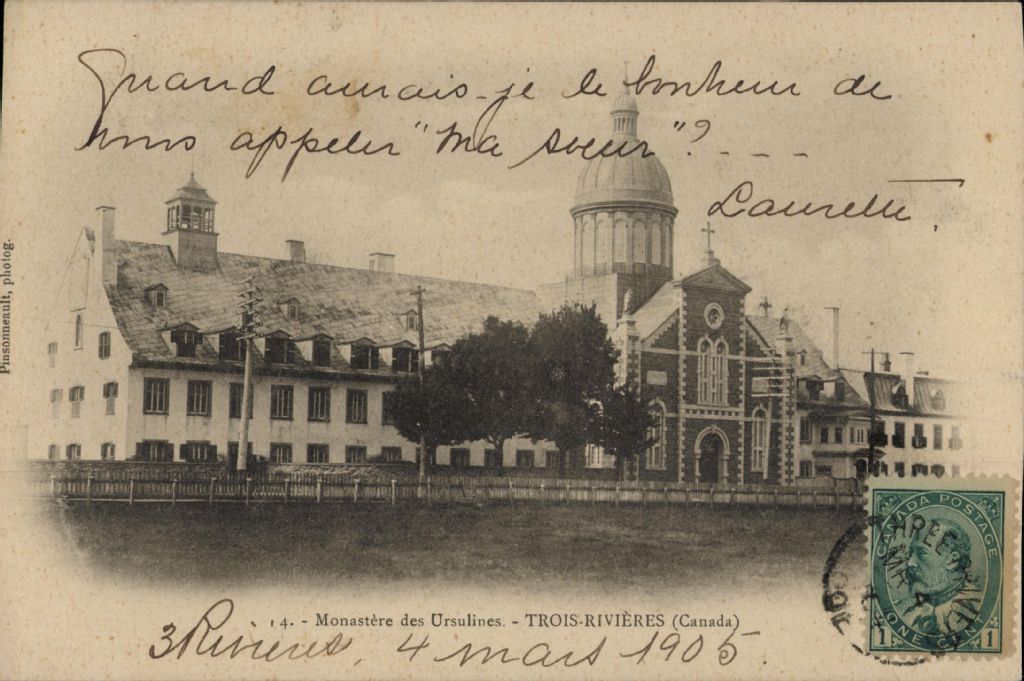 Quand aurais-je le bonheur de
vous appeler "Ma sœur"? - - -
Laurette
Pinsonneault, photog.
14. - Monastère des Ursulines. - TROIS-RIVIÈRES (Canada)
3 Rivières, 4 mars 1905.
CANADA POSTAGE
1 ONE CENT 1
THREE RIVERS
MR 4